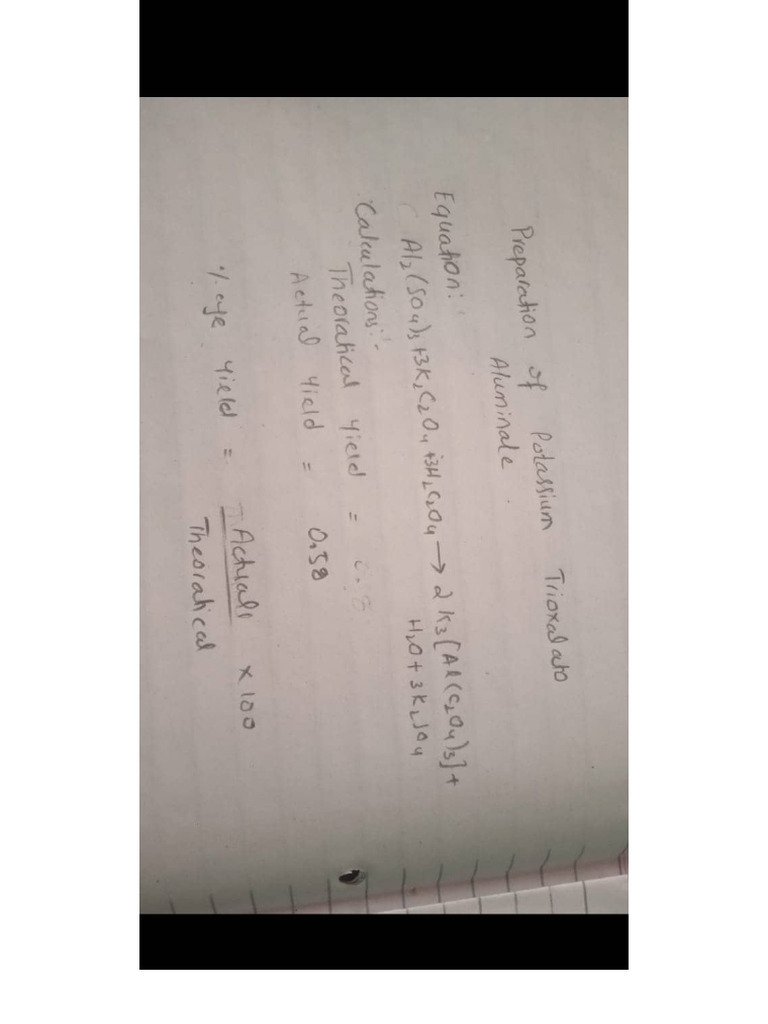 Preparation of Potassium Trioxalato
Aluminate.
Equation:-
Al2(SO4)3+3K2C2O4+3H2C2O4 → 2K3[Al(C2O4)3]+
H2O+3K2SO4
Calculations:-
Theoratical yield =
Actual yield = 0.58
%age yield = Actual × 100
Theoratical